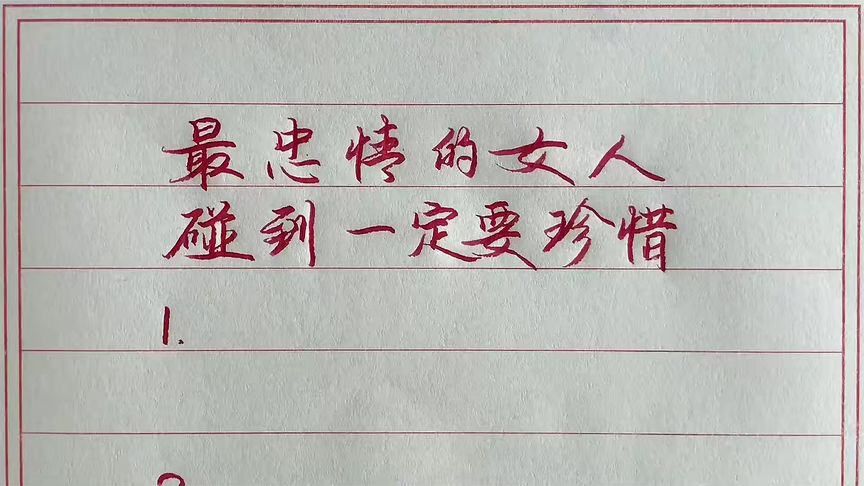 最忠情的女人
碰到一定要珍惜
1.